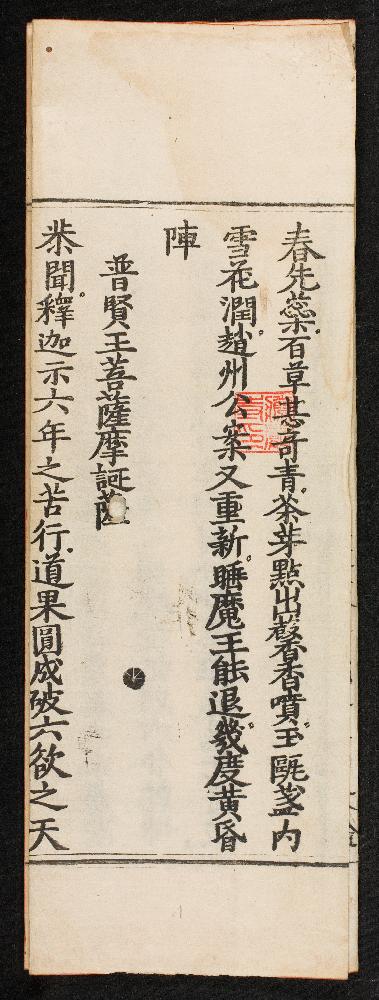 春先蘂百草甚奇青茶芽點出巖罄香噴玉甌盞内
雪花潤趙州公案又重新睡魔王能退幾度黄昏
陣
普賢王菩薩摩訶薩
恭聞釋迦示六年之苦行道果圓成破六欲之天